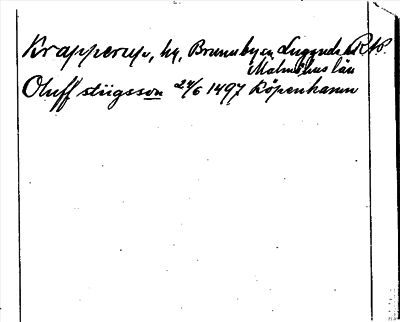 Krapperup, hg, Brunnby sn Luggude hd RAP.
Malmöhus län
Oluff stiigsson 24/6 1497 Köpenhamn